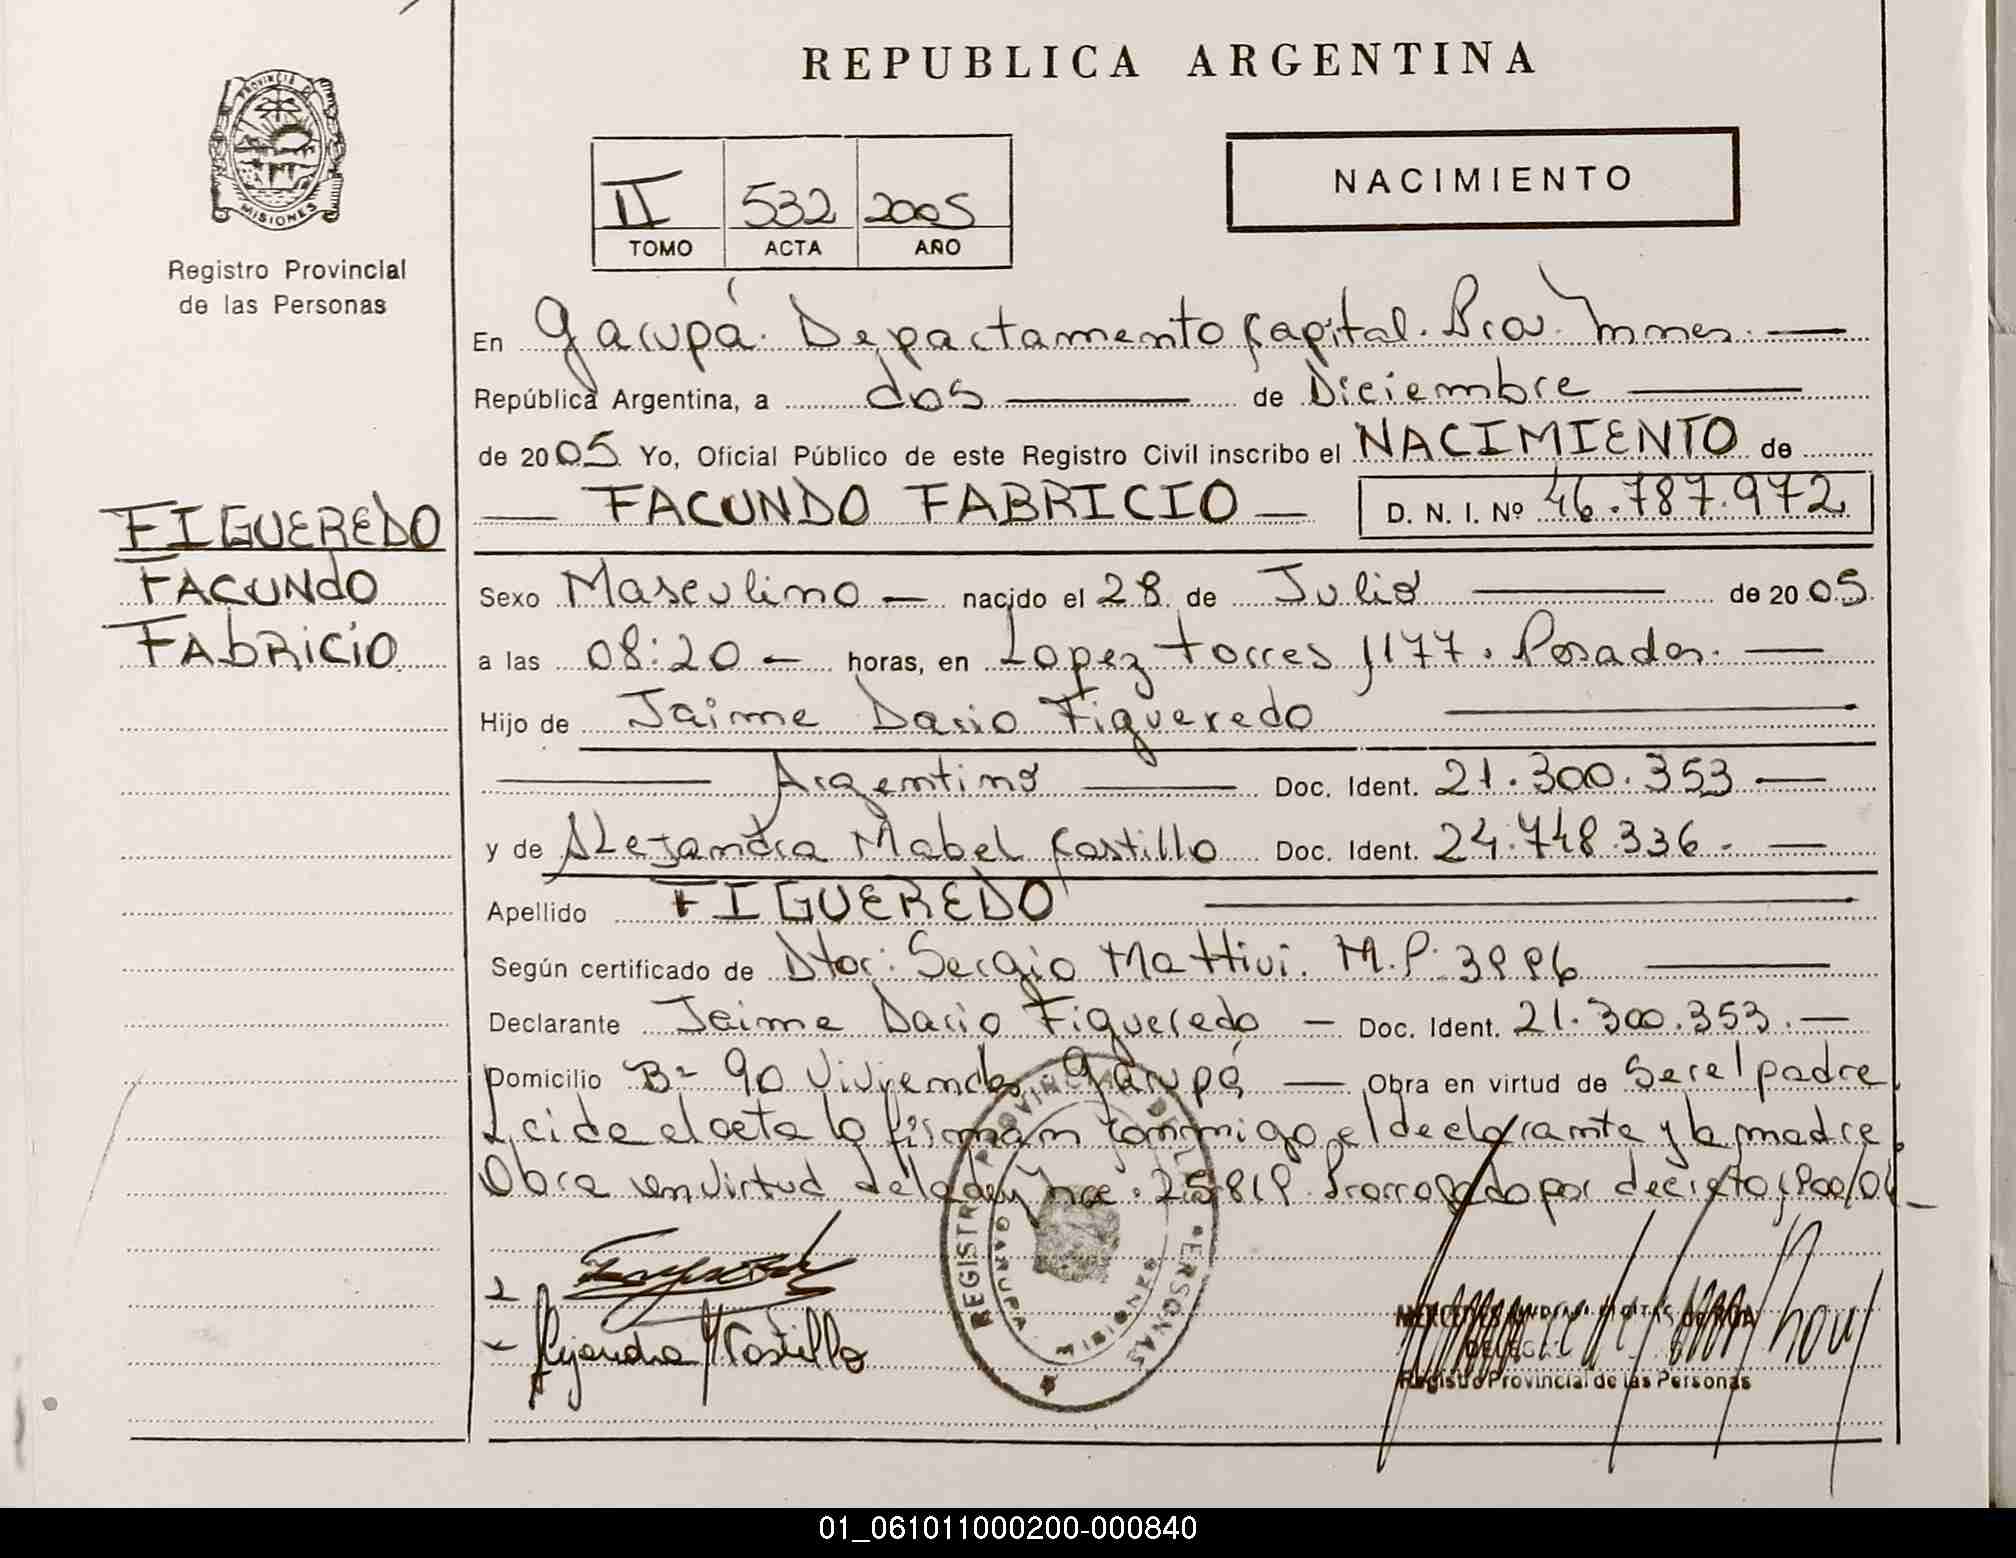 REPUBLICA ARGENTINA
PROVINCIA DE
MISIONES
Registro Provincial
de las Personas
II 532 2005
TOMO ACTA AÑO
NACIMIENTO
En Garupá. Departamento Capital. Prov. Mnes.
República Argentina, a dos de Diciembre
de 2005 Yo, Oficial Público de este Registro Civil inscribo el NACIMIENTO de
FACUNDO FABRICIO D. N. I. Nº 46.787.972
FIGUEREDO
FACUNdO
FAbRiCiO
Sexo Masculino nacido el 28 de Julio de 2005
a las 08:20 horas, en Lopez Torres 1177. Posadas.
Hijo de Jaime Dario Figueredo
Argentino Doc. Ident. 21.300.353
y de Alejandra Mabel Castillo Doc. Ident. 24.748.336.
Apellido FIGUEREDO
Según certificado de Dtor: Sergio Mattivi. M.P.
Declarante Jaime Dario Figueredo Doc. Ident. 21.300.353.
Domicilio Bº 90 Viviendas Garupá Obra en virtud de Ser el padre
Leida el acta la firman conmigo el declarante y la madre.
Obra en virtud de la ley nro. 25819. Prorrogado por decreto
REGISTRO PROVINCIAL DE LAS PERSONAS
GARUPA MISIONES
Alejandra M Castillo
Registro Provincial de las Personas
01_061011000200-000840